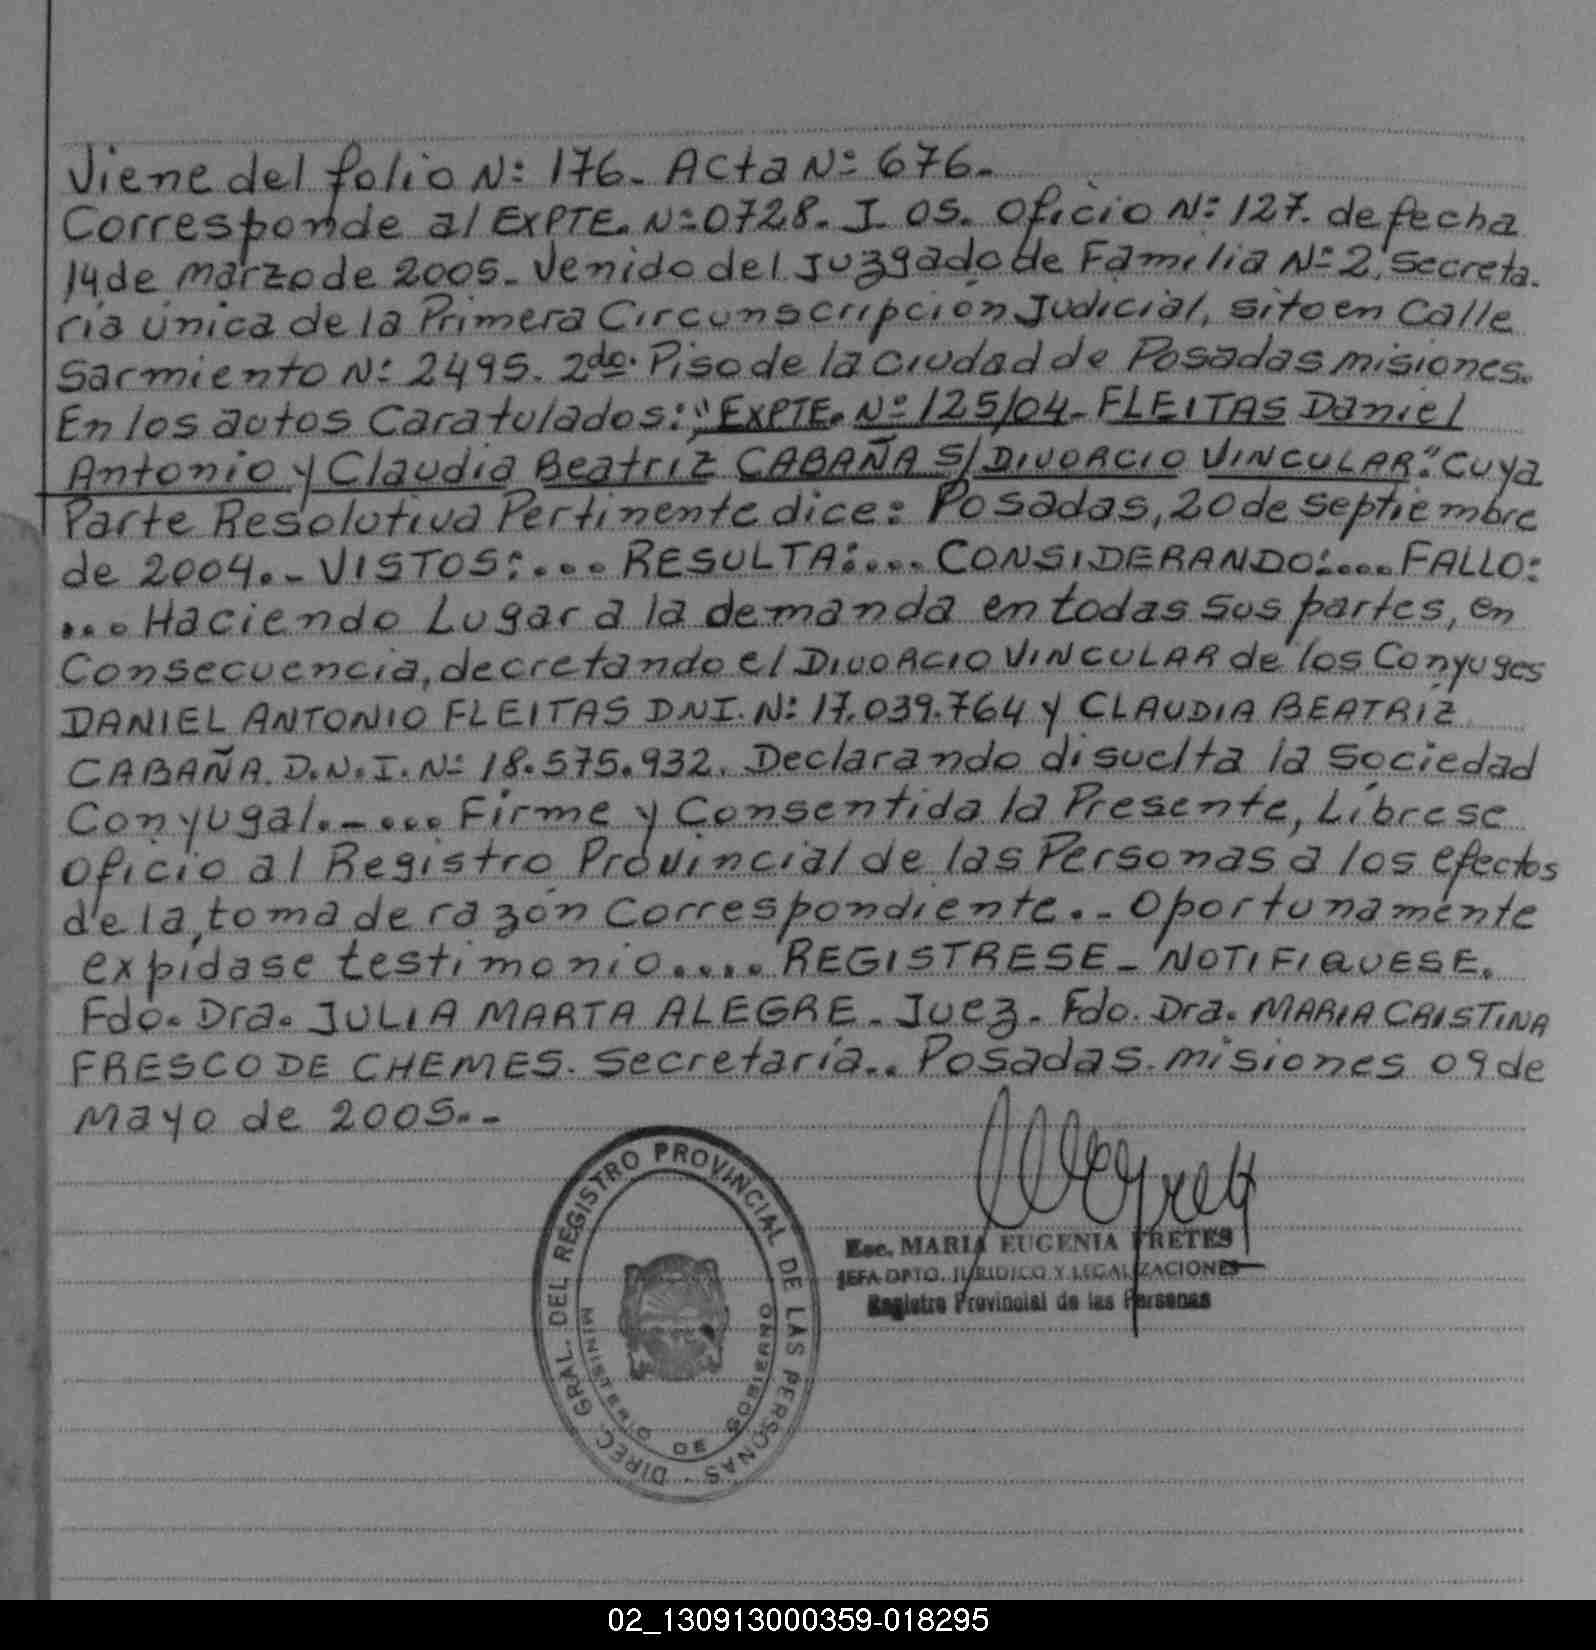 Viene del folio Nº 176. Acta Nº 676.
Corresponde al EXPTE. Nº 0728. I. 05. Oficio Nº 127. de fecha
14 de marzo de 2005. Venido del Juzgado de Familia Nº 2, Secreta.
ría única de la Primera Circunscripción Judicial, sito en Calle
Sarmiento Nº 2495. 2do. Piso de la Ciudad de Posadas misiones.
En los autos Caratulados: "EXPTE. Nº 125/04. FLEITAS Daniel
Antonio y Claudia Beatriz CABAÑA S/DIVORCIO VINCULAR." Cuya
Parte Resolutiva Pertinente dice: Posadas, 20 de septiembre
de 2004.- VISTOS:... RESULTA:... CONSIDERANDO:.... FALLO:
... Haciendo Lugar a la demanda en todas sus partes, en
Consecuencia, decretando el DIVORCIO VINCULAR de los Conyuges
DANIEL ANTONIO FLEITAS DNI. Nº 17.039.764 y CLAUDIA BEATRIZ
CABAÑA. D.N.I. Nº 18.575.932. Declarando disuelta la Sociedad
Conyugal.-... Firme y Consentida la Presente, Líbrese
Oficio al Registro Provincial de las Personas a los efectos
de la, toma de razón Correspondiente.- Oportunamente
expídase testimonio.... REGISTRESE - NOTIFIQUESE.
Fdo. Dra. JULIA MARTA ALEGRE. Juez. Fdo. Dra. MARIA CRISTINA
FRESCO DE CHEMES. Secretaría.. Posadas. misiones 09 de
Mayo de 2005.-
DIREC. GRAL. DEL REGISTRO PROVINCIAL DE LAS PERSONAS -
MINISTERIO DE GOBIERNO
Esc. MARIA EUGENIA FRETES
JEFA DPTO. JURIDICO Y LEGALIZACIONES
Registro Provincial de las Personas
02_130913000359-018295